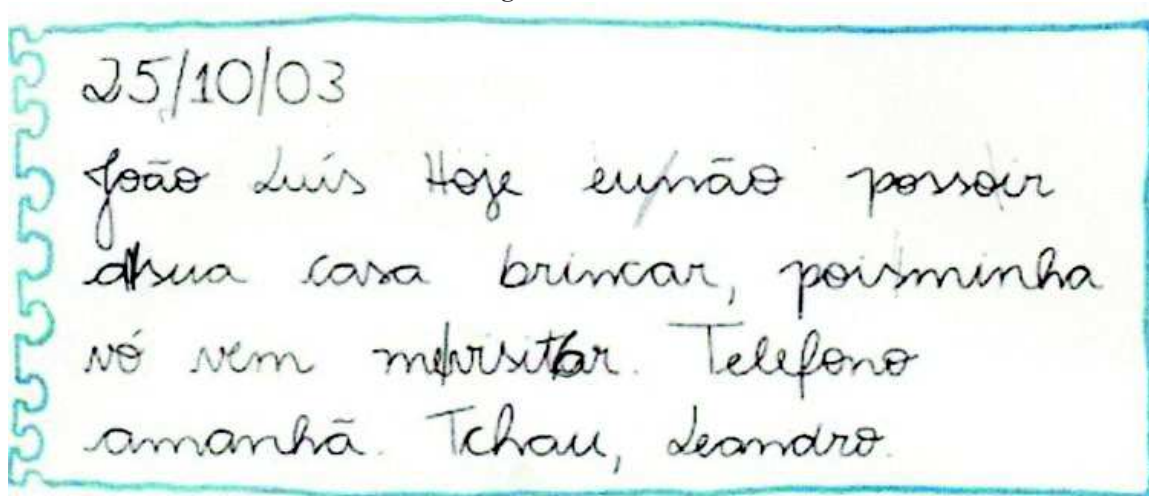 25/10/03
João Luís Hoje eu/não posso/ir
a/sua casa brincar, pois/minha
vó vem me/visitar. Telefono
amanhã. Tchau, Leandro.